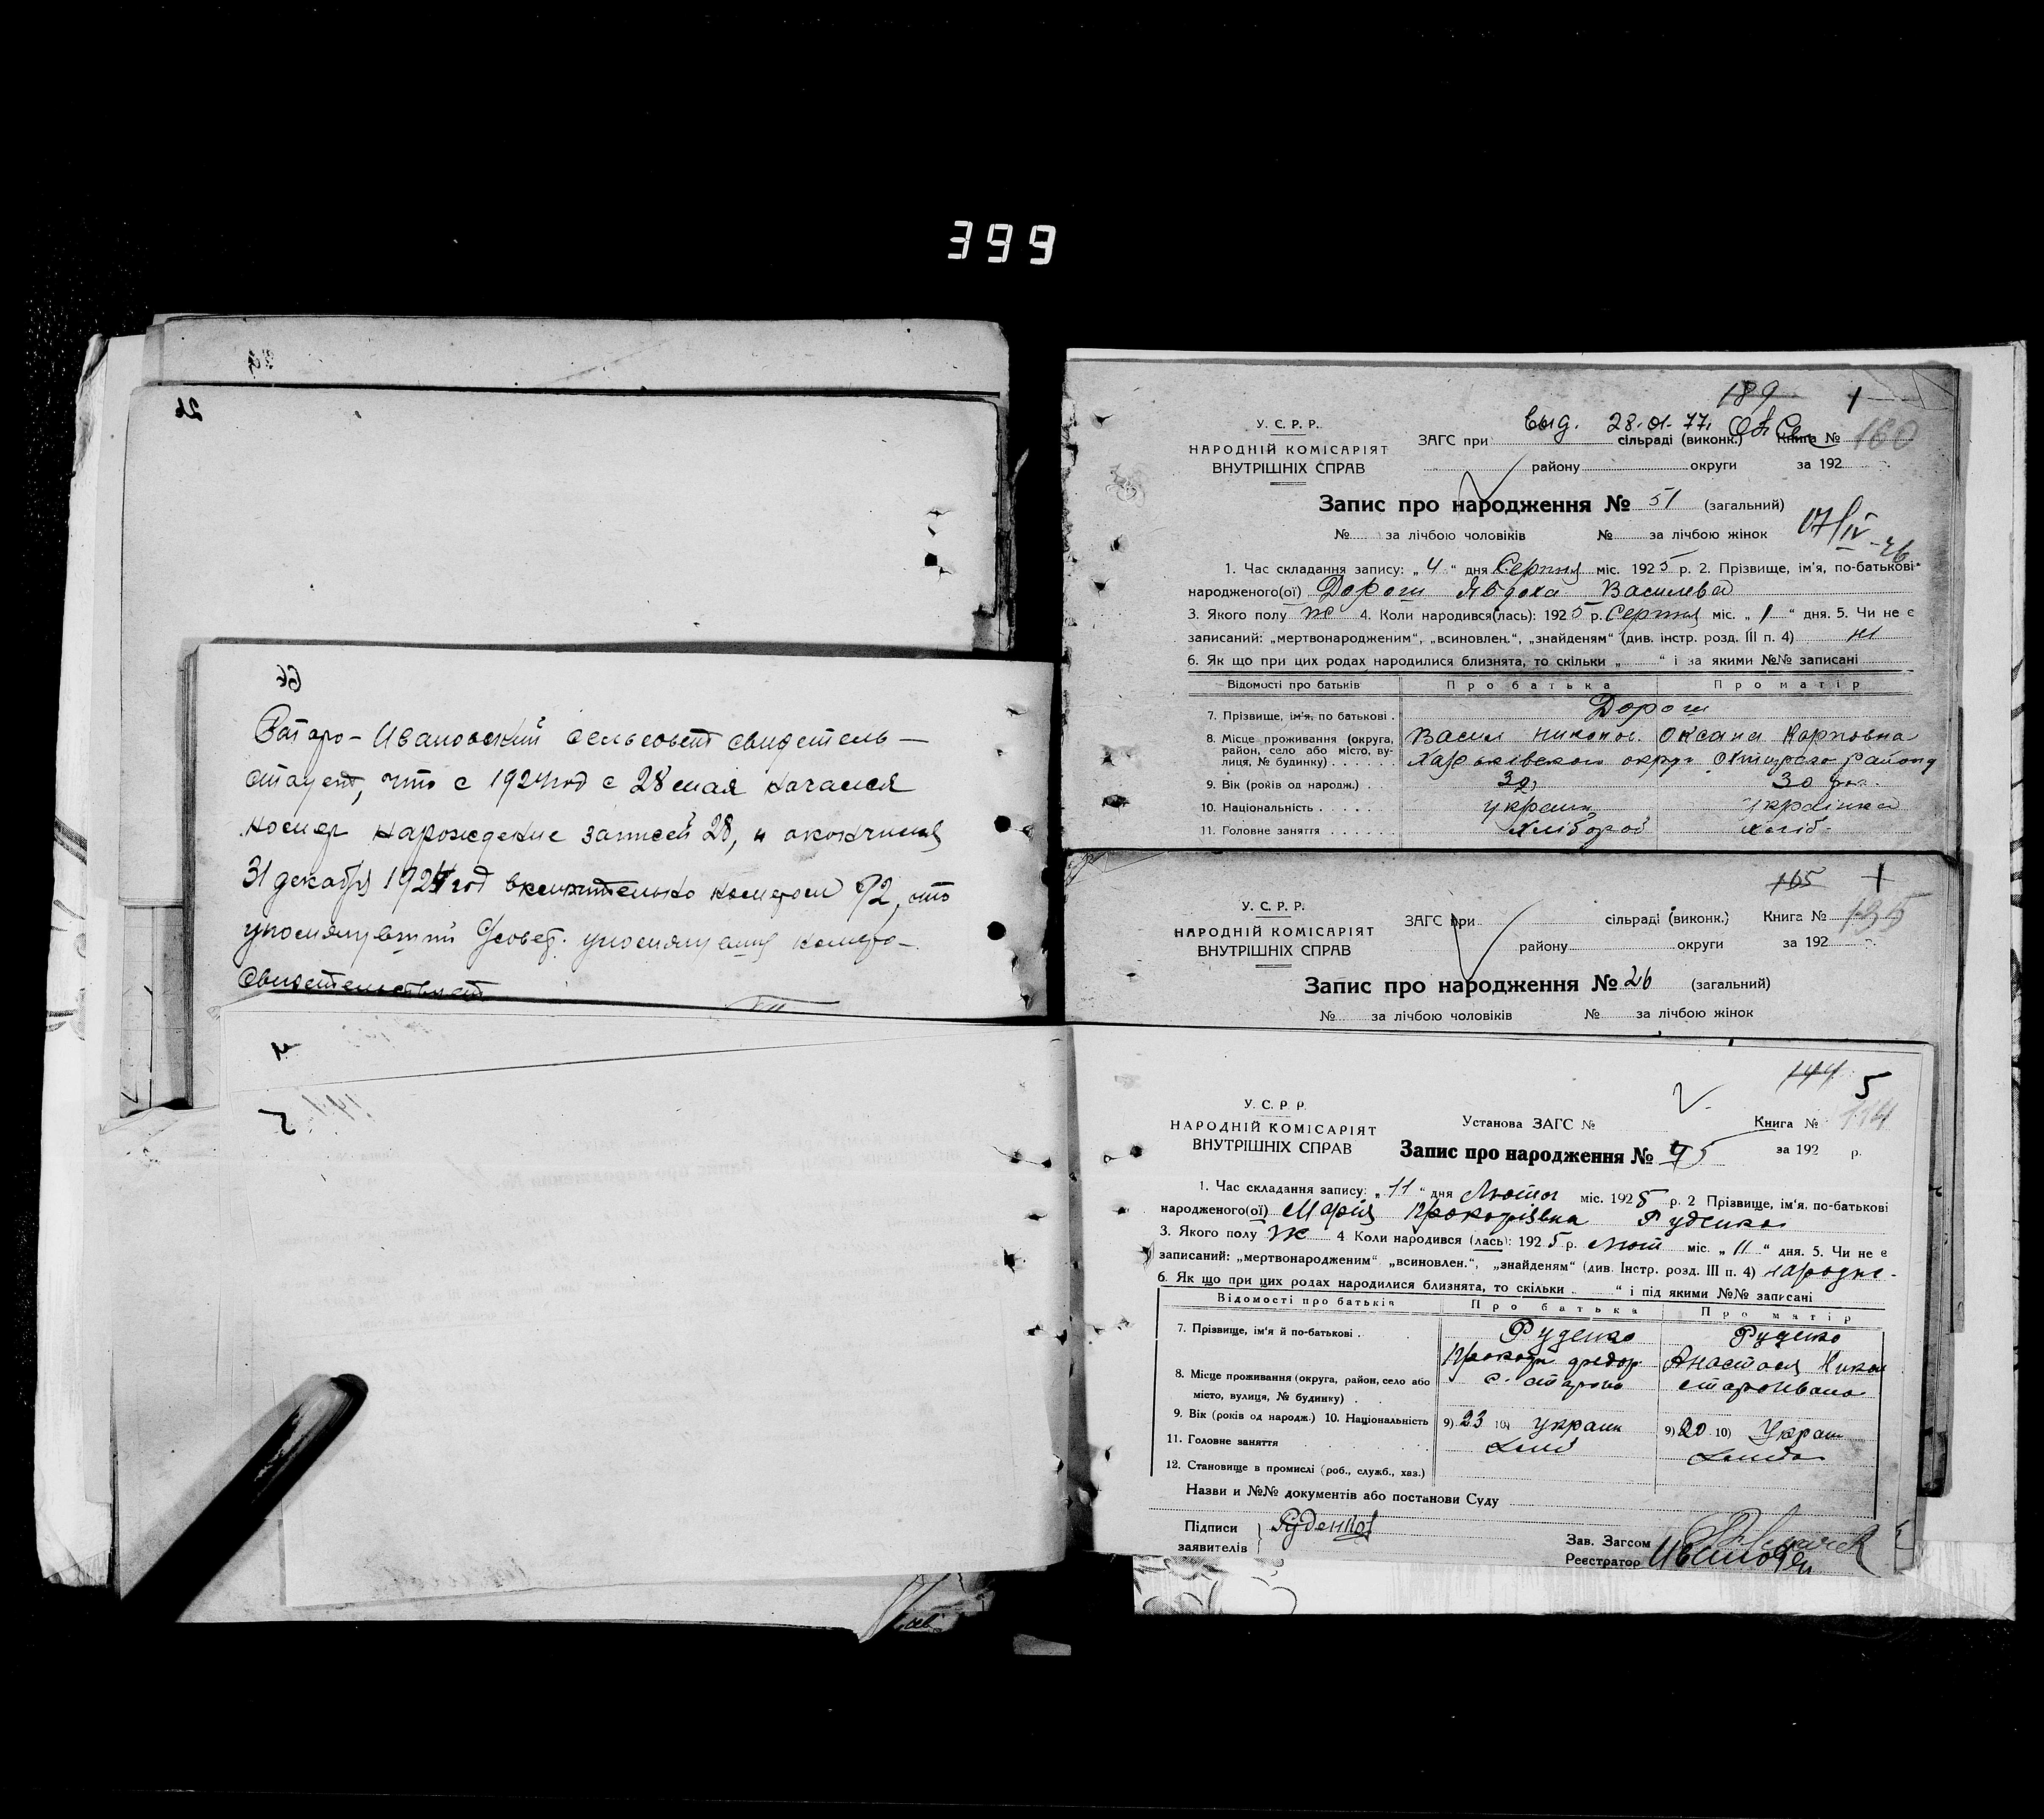 399
Старо-Ивановский сельсовет свидетель-
ствует, что с 1924 год с 28 мая начался
номер нарождение записей 28, и окончился
31 декабря 1924 год включительно номером 92, что
упомянувший С/совет. упомянувший номеро-
Свидетельствует
189 1
выд. 28.01.77.
У. С. Р. Р.
НАРОДНІЙ КОМІСАРІЯТ
ВНУТРІШНІХ СПРАВ
ЗАГС при сільраді (виконк.) Книга № 160
району округи за 192
Запис про народження № 51 (загальний)
№ за лічбою чоловіків № за лічбою жінок
07/IV-76
1. Час складання запису: „4“ дня Серпня міс. 1925 р. 2. Прізвище, ім'я, по-батькові
народженого(ої) Дорош Явдоха Василева
3. Якого полу Ж 4. Коли народився(лась): 1925 р. Серпня міс. „1“ дня. 5. Чи не є
записаний: „мертвонародженим“, „всиновлен.“, „знайденям“ (див. інстр. розд. III п. 4) ні
6. Як що при цих родах народилися близнята, то скільки „ “ і за якими №№ записані
Відомости про батьків Про батька Про матір
7. Прізвище, ім'я, по батькові . Дорош
Васил Никопос. Оксана Карповна
8. Місце проживання (округа, район, село або місто, ву-
лиця, № будинку) . . . . . . Харьківскою округ Охтирсго району
9. Вік (років од народж.) . . 32 30
10. Національність . . . . . Украин Українка
11. Головне заняття . . . . . . Хлібороб хліб-
165 1
У. С. Р. Р.
НАРОДНІЙ КОМІСАРІЯТ
ВНУТРІШНІХ СПРАВ
ЗАГС при сільраді (виконк.) Книга № 135
району округи за 192
Запис про народження № 26 (загальний)
№ за лічбою чоловіків № за лічбою жінок
144 5
У. С. Р. Р.
НАРОДНІЙ КОМІСАРІЯТ
ВНУТРІШНІХ СПРАВ
Установа ЗАГС № Книга № 114
Запис про народження № 95 за 192 р.
1. Час складання запису: „11“ дня Лютого міс. 1925 р. 2 Прізвище, ім'я, по-батькові
народженого(ої) Марія Прокопіевна Руденко
3. Якого полу Ж 4 Коли народився (лась): 1925 р. Лют міс. „11“ дня. 5. Чи не є
записаний: „мертвонародженим“ „всиновлен.“, „знайденям“ (див. Інстр. розд. III п. 4) народже-
6. Як що при цих родах народилися близнята, то скільки „ “ і під якими №№ записані
Відомості про батьків Про батька Про матір
7. Прізвище, ім'я й по-батькові . Руденко Руденко
Прокоп Федор Анастася Никол
8. Місце проживання (округа, район, село або
місто, вулиця, № будинку) . . с. Старои староивано
9. Вік (років од народж.) 10. Національність 9) 23 10) Украин 9) 20 10) Украин
11. Головне заняття
12. Становище в промислі (роб., служб., хаз.)
Назви и №№ документів або постанови Суду
Підписи
заявителів Руденков
Зав. Загсом
Реєстратор